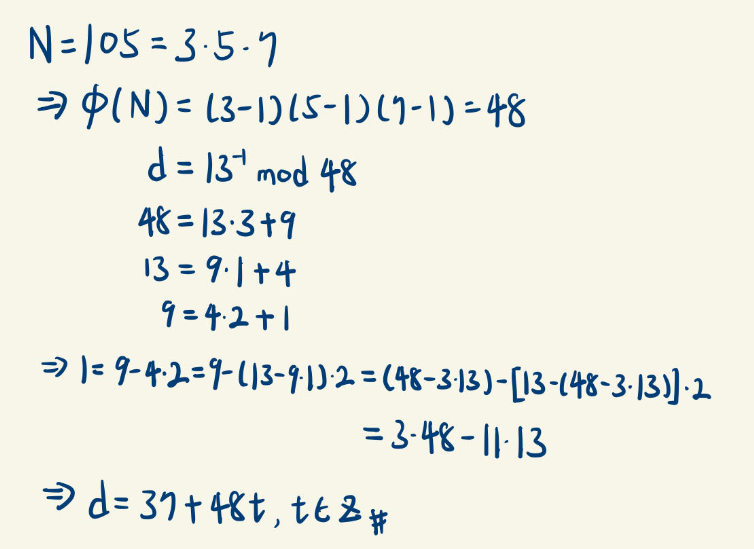 N=105=3·5·7
⇒ φ(N)=(3-1)(5-1)(7-1)=48
d=13⁻¹ mod 48
48=13·3+9
13=9·1+4
9=4·2+1
⇒ 1=9-4·2=9-(13-9·1)·2=(48-3·13)-[13-(48-3·13)]·2
=3·48-11·13
⇒ d=37+48t, t∈Z #